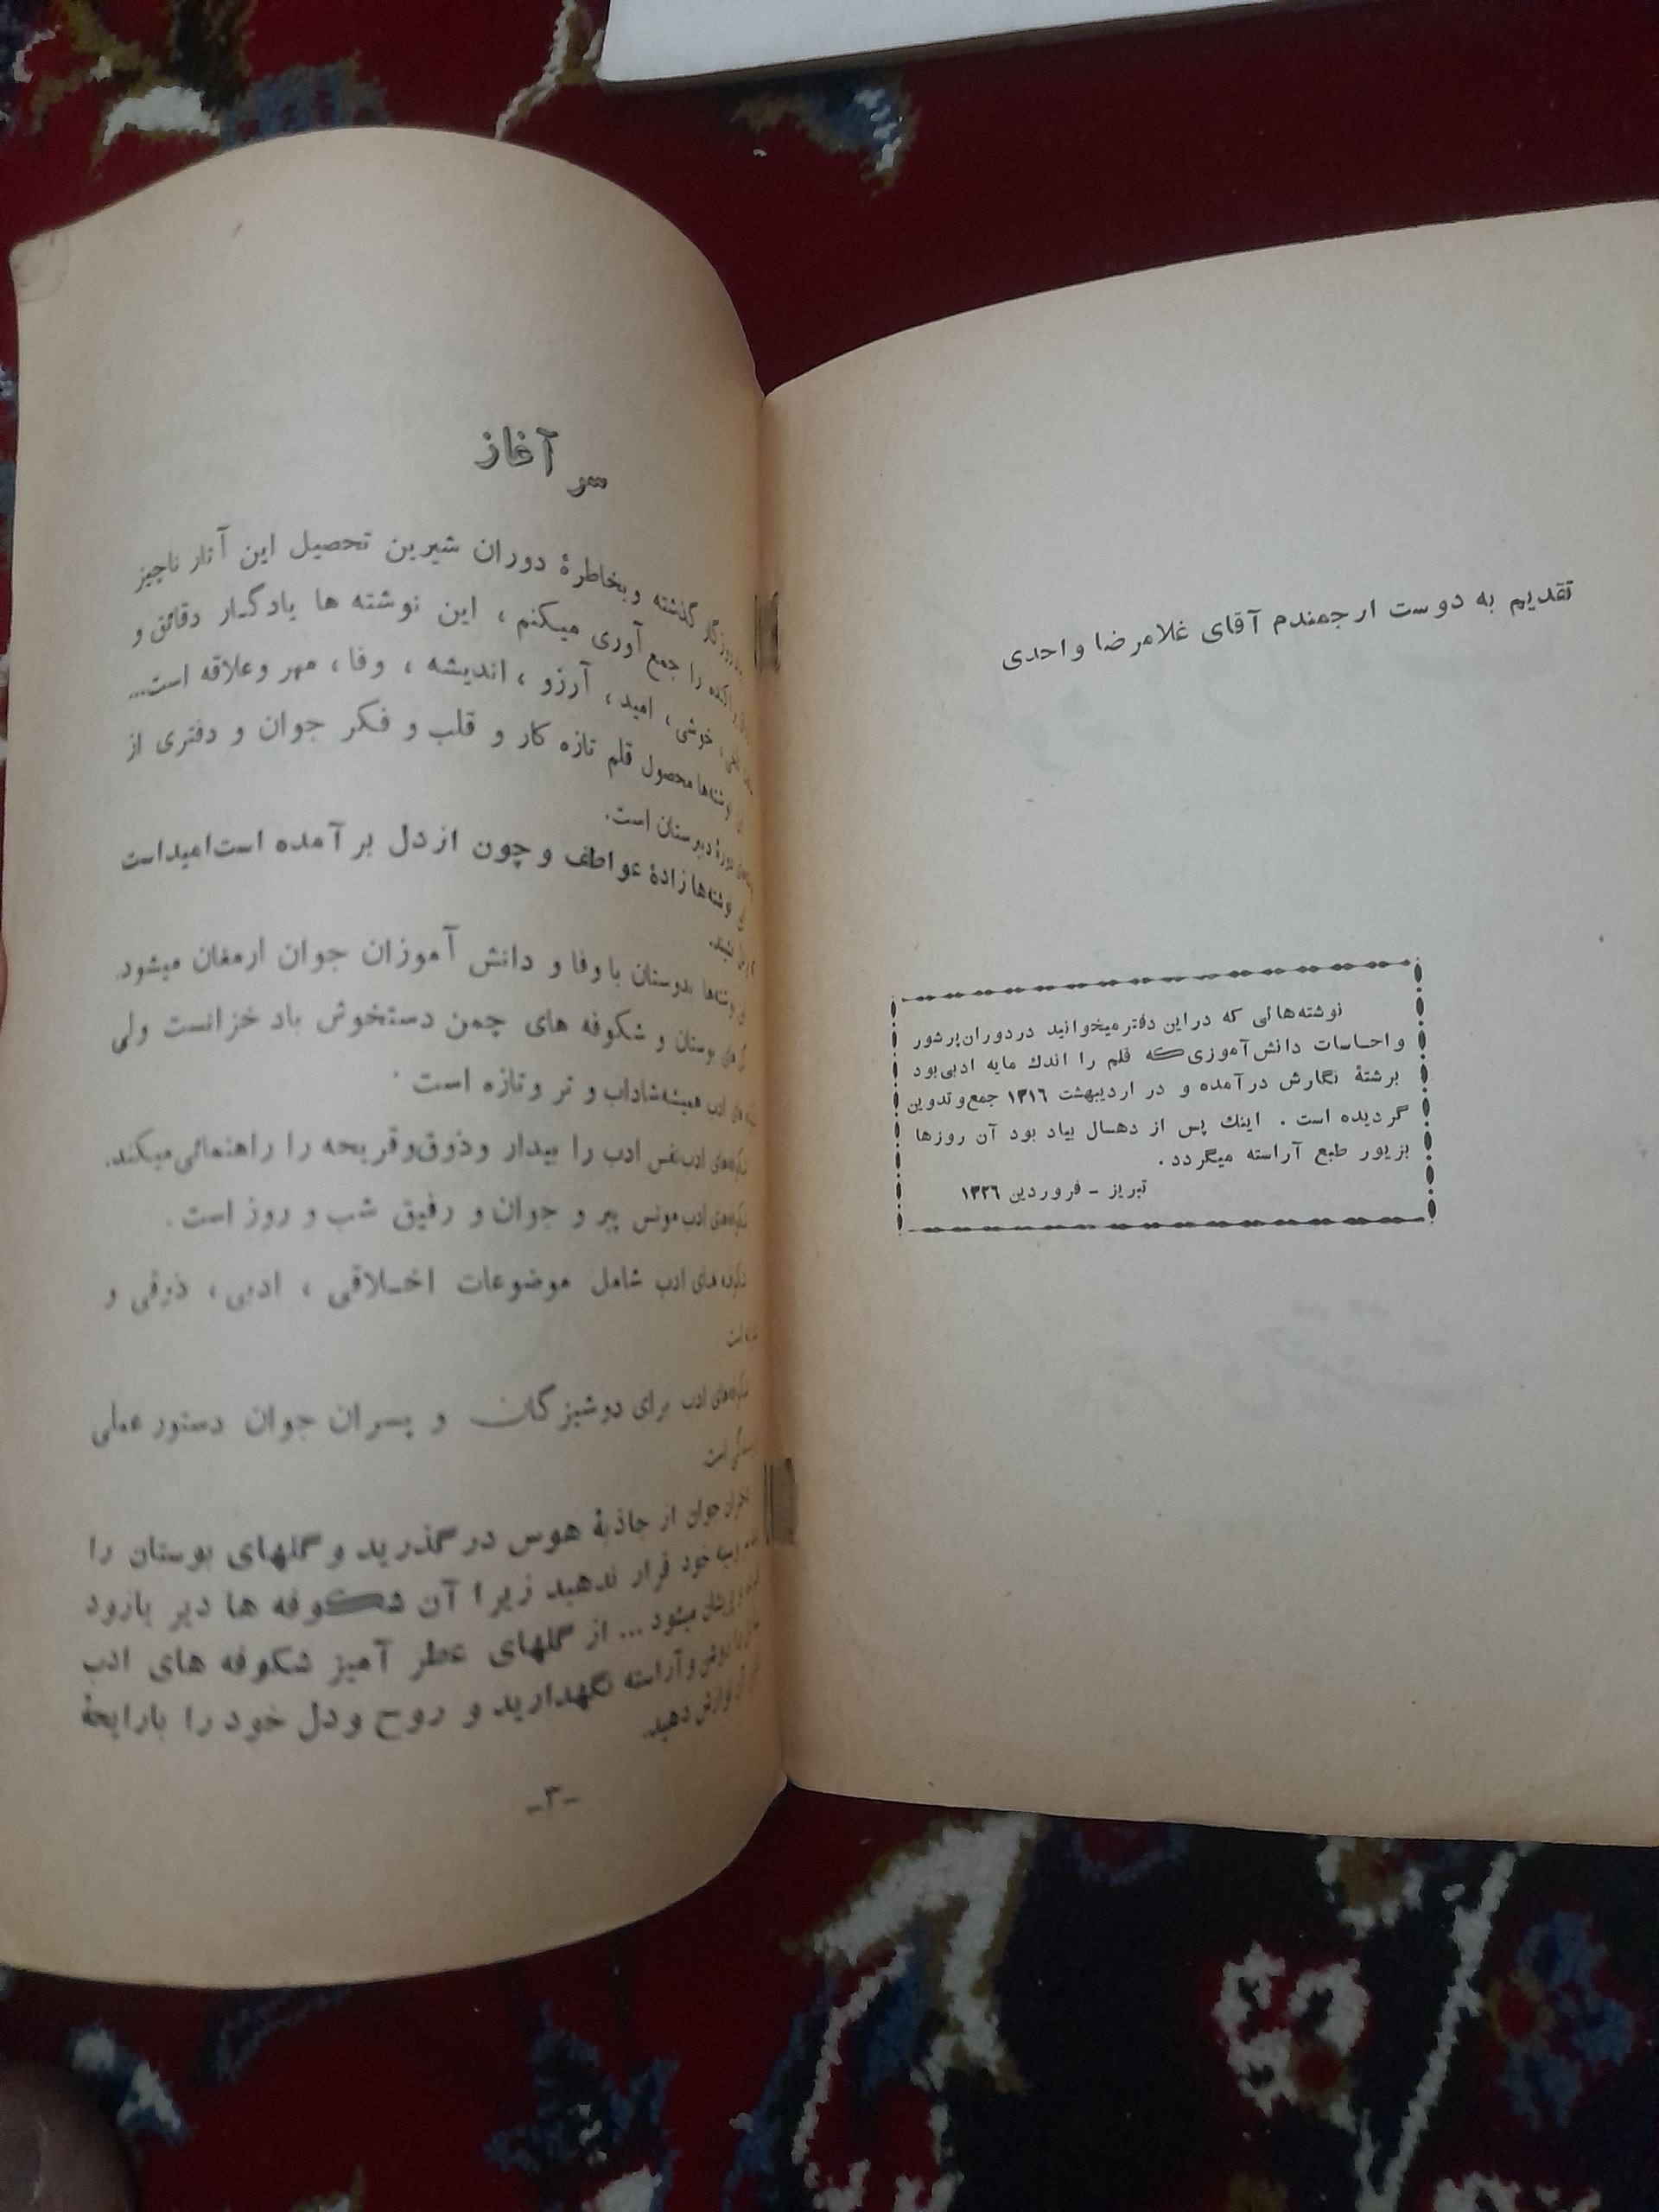 تقدیم به دوست ارجمندم آقای غلامرضا واحدی
نوشته‌هائی که در این دفتر میخوانید در دوران پرشور
و احساسات دانش‌آموزی که قلم را اندك مایه ادبی بود
برشتهٔ نگارش درآمده و در اردیبهشت ۱۳۱۶ جمع و تدوین
گردیده است . اینك پس از دهسال بیاد بود آن روزها
بزیور طبع آراسته میگردد .
تبریز - فروردین ۱۳۲۶
سر آغاز
گذشته و بخاطرهٔ دوران شیرین تحصیل این آثار ناچیز
را جمع آوری میکنم ، این نوشته ها یادگار دقائق و
خوشی ، امید ، آرزو ، اندیشه ، وفا ، مهر و علاقه است...
محصول قلم تازه کار و قلب و فکر جوان و دفتری از
دورهٔ دبیرستان است.
نوشته‌ها زادهٔ عواطف و چون از دل بر آمده است امید است
بدوستان با وفا و دانش آموزان جوان ارمغان میشود.
بوستان و شکوفه های چمن دستخوش باد خزانست ولی
ادب همیشه شاداب و تر و تازه است .
ادب نفس ادب را بیدار و ذوق و قریحه را راهنمائی میکند.
ادب مونس پیر و جوان و رفیق شب و روز است .
شکوفه های ادب شامل موضوعات اخلاقی ، ادبی ، ذوقی و
است
ادب برای دوشیزگان و پسران جوان دستور عملی
است
جوان از جاذبهٔ هوس در گذرید و گلهای بوستان را
خود قرار ندهید زیرا آن شکوفه ها دیر یا زود
میشود ... از گلهای عطر آمیز شکوفه های ادب
و آراسته نگهدارید و روح و دل خود را با رایحهٔ
نوازش دهید.
-۳-